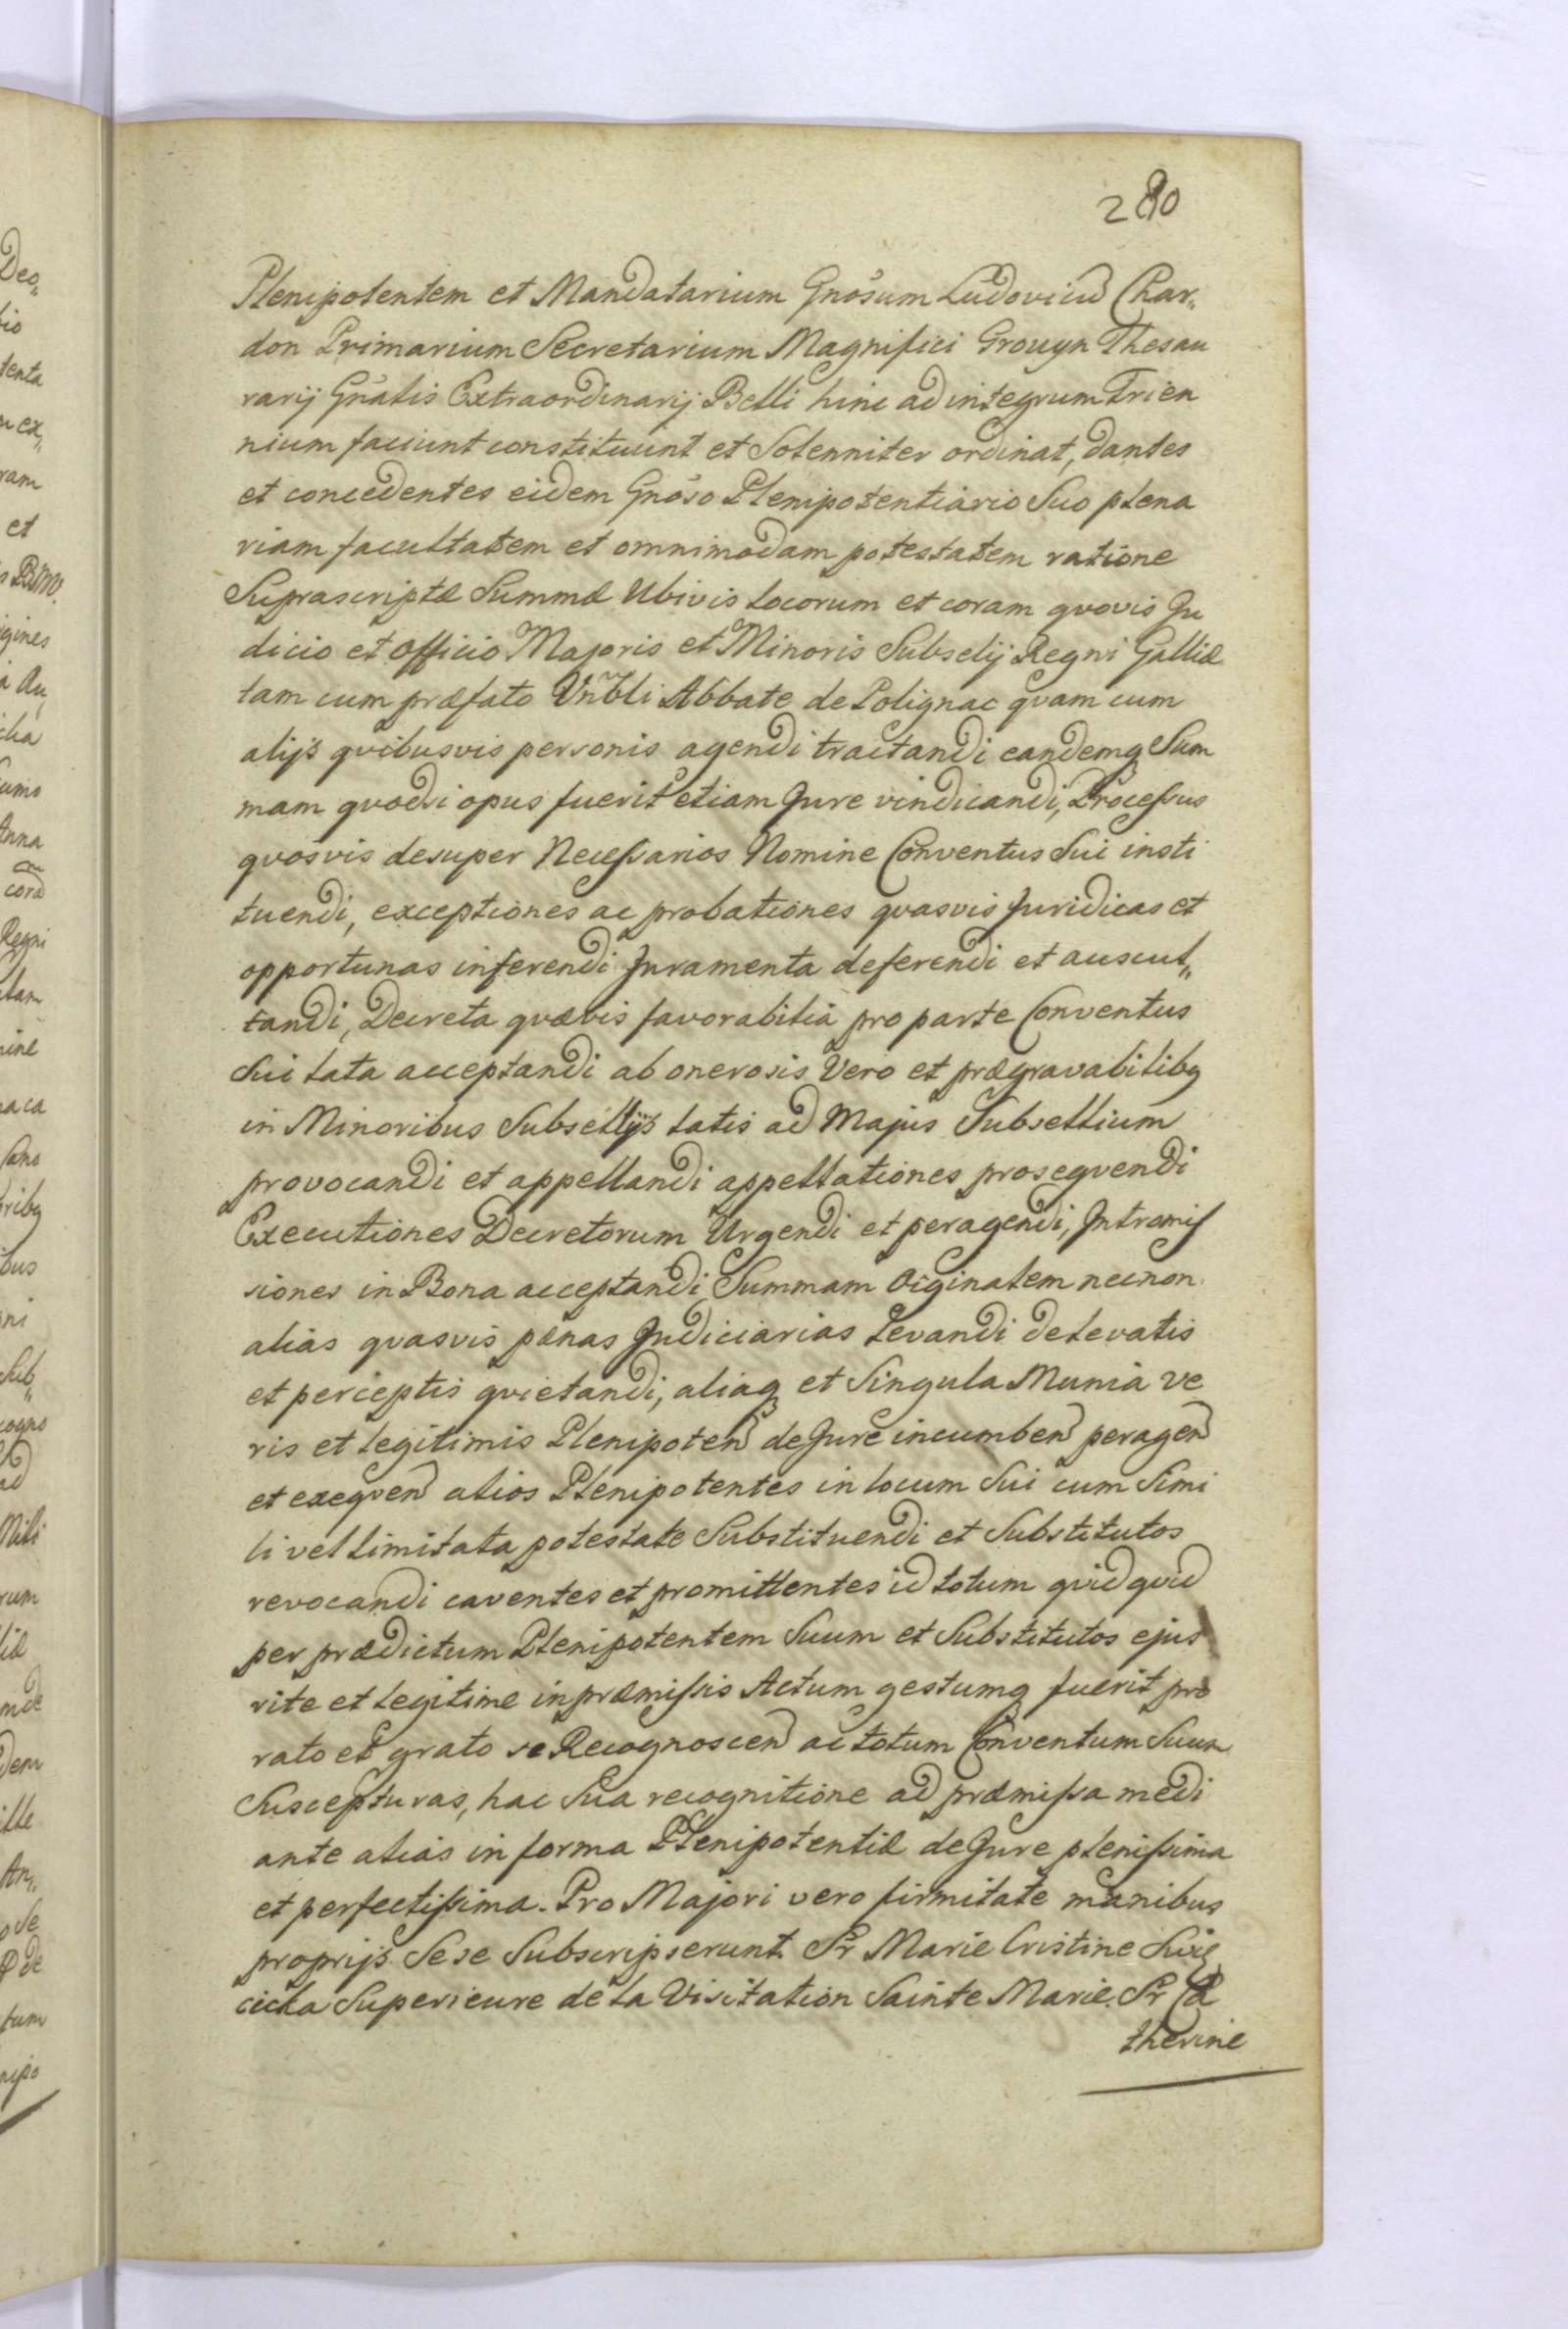 280
Plenipotentem et Mandatarium Gnõsum Ludovicũ Char„
don Primarium Secretarium Magnifici Grouyn Thesau
rarij Gnãlis Extraordinarij Belli hinc ad integrum Trien
nium faciunt constituunt et Solenniter ordinat, dantes
et concedentes eidem Gnõso Plenipotentiario Suo plena
riam facultatem et omnimodam potestatem ratione
Suprascriptæ Summæ Ubivis locorum et coram qvovis Ju
dicio et officio Majoris et Minoris Subselij Regni Galliæ
tam cum præfato Vnłbli Abbate de Polignac qvam cum
alijs qvibusvis personis agendi tractandi eandemq Sum
mam qvodsi opus fuerit etiam Jure vindicandi, Processus
qvosvis desuper Necessarios Nomine Conventus Sui insti
tuendi, exceptiones ac probationes qvasvis Juridicas et
opportunas inferendi Juramenta deferendi et auscul„
tandi, Decreta qvævis favorabilia pro parte Conventus
Sui lata acceptandi ab onerosis Vero et prægravabilibq
in Minoribus Subsellijs latis ad Majus Subsellium
provocandi et appellandi appellationes proseqvendi
Executiones Decretorum Urgendi et peragendi, Intromis
siones in Bona acceptandi Summam Oiginalem necnon
alias qvasvis pænas Judiciarias Levandi de levatis
et perceptis qvietandi, aliaq et Singula Munia ve
ris et legitimis Plenipoten de Jure incumben peragen
et exeqven alios Plenipotentes in locum Sui cum Simi
li vel limitata potestate Substituendi et Substitutos
revocandi caventes et promittentes id totum qvidqvid
per prædictum Plenipotentem Suum et Substitutos ejus
rite et legitime in præmissis Actum gestumq fuerit pro
rato et grato se Recognoscen ac totum Conventum Suum
Suscepturas, hac Sua recognitione ad præmissa medi
ante alias in forma Plenipotentiæ de Jure plenissima
et perfectissima. Pro Majori vero firmitate manibus
proprijs Sese Subscripserunt. Sr Marie Cristine
cicka Superieure de la Visitation Sainte Marie. Sr Ca
therine